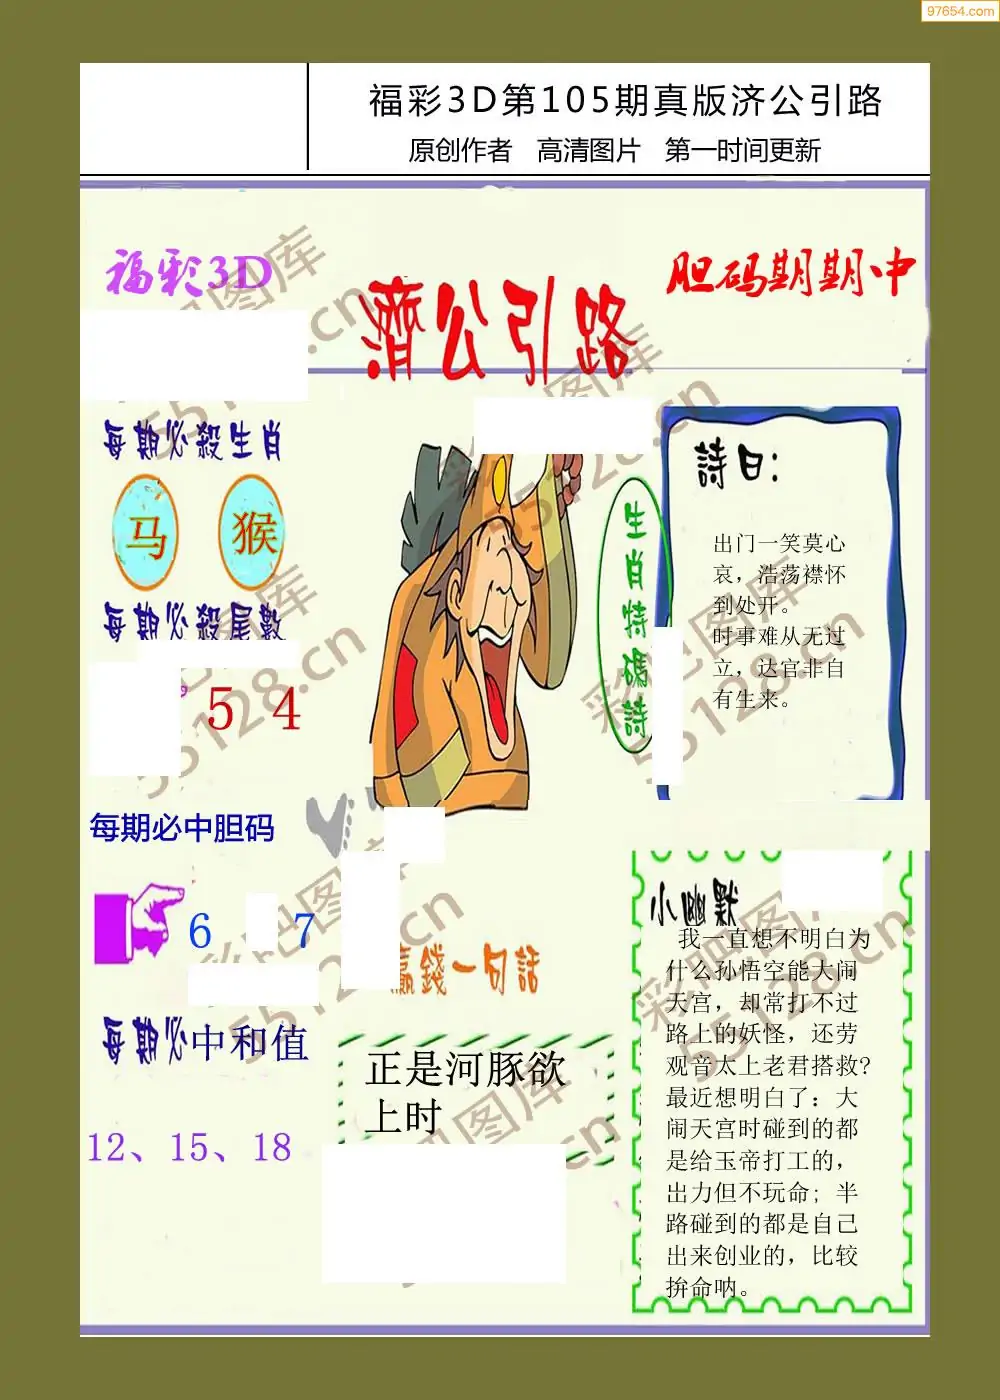 97654.com
福彩3D第105期真版济公引路
原创作者 高清图片 第一时间更新
福彩3D
濟公引路
胆码期期中
每期必殺生肖
马 猴
每期必殺尾數
5 4
每期必中胆码
6 7
每期必中和值
12、15、18
生肖特碼詩
詩曰:
出门一笑莫心
哀，浩荡襟怀
到处开。
时事难从无过
立，达官非自
有生来。
赢錢一句話
正是河豚欲
上时
小幽默
我一直想不明白为
什么孙悟空能大闹
天宫，却常打不过
路上的妖怪，还劳
观音太上老君搭救?
最近想明白了：大
闹天宫时碰到的都
是给玉帝打工的，
出力但不玩命；半
路碰到的都是自己
出来创业的，比较
拚命呐。
彩吧图库
55128.cn